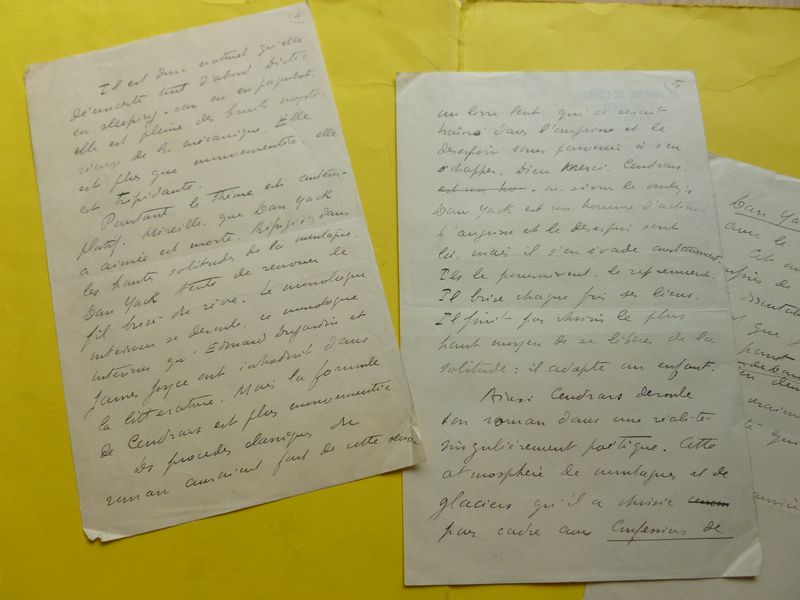 4
Il est donc naturel qu'elle
déconcerte tout d'abord. Dictée
en sleeping-car ou en paquebot,
elle est pleine des bruits mysté-
rieux de la mécanique. Elle
est plus que mouvementée, elle
est trépidante.
Pourtant, le thème est contem-
platif. Mireille, que Dan Yack
a aimée est morte. Réfugié dans
les hautes solitudes de la montagne,
Dan Yack tente de renouer le
fil brisé du rêve. Le monologue
intérieur se déroule, ce monologue
intérieur qu'Edouard Dujardin et
James Joyce ont introduit dans
la littérature. Mais la formule
de Cendrars est plus mouvementée
Les procédés classiques du
roman auraient fait de cette
5
un livre lent, qui se serait
traîné dans l'angoisse et le
désespoir sans parvenir à s'en
échapper. Dieu merci, Cendrars
Dan Yack est un homme d'action.
L'angoisse et le désespoir sont
là, mais il s'en évade constamment.
Ils le poursuivent, le reprennent.
Il brise chaque fois ses liens.
Il finit par choisir le plus
haut moyen de se libérer de la
solitude : il adopte un enfant.
Ainsi Cendrars déroule
son roman dans une réalité
singulièrement poétique. Cette
atmosphère de montagnes et de
glaciers qu'il a choisie
pour cadre aux Confessions de
Dan Yack